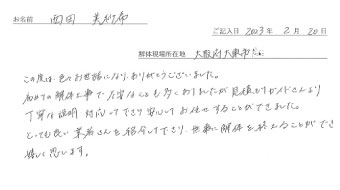 お名前 西田 美納希
ご記入日 2023年 2月 20日
解体現場所在地 大阪府大東市
この度は、色々お世話になり、ありがとうございました。
初めての解体工事で不安なことも多くありましたが見積りガイドさんより
丁寧な説明 対応して下さり安心してお任せすることができました。
とっても良い業者さんを紹介して下さり、無事に解体を終えることができ
嬉しく思います。